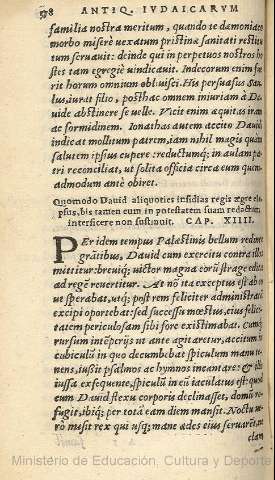 578 ANTIQ. IVDAICARVM
familia nostra meritum, quando te dæmoniaco
morbo miserè vexatum pristinæ sanitati restitu
tum seruauit: deinde qui in perpetuos nostros ho
stes tam egregiè uindicauit. Indecorum enim fue
rit horum omnium obliuisci. His persuasus Sau-
lus, iurat filio, posthac omnem iniuriam à Da-
uide abstinere se uelle. Vicit enim æquitas iram
ac formidinem. Ionathas autem accito Dauidi
indicat mollitum patrem, iam nihil magis quam
salutem ipsius cupere: reductumq; in aulam pa-
tri reconciliat, ut solita officia circa eum quem-
admodum antè obiret.
Quomodo Dauid aliquoties insidias regis ægre ela
psus, bis tamen eum in potestatem suam redactum
interficere non sustinuit. CAP. XIIII.
PEr idem tempus Palæstinis bellum redinte
grātibus, Dauid cum exercitu contra illos
mittitur: breuiq; uictor magna eorū strage edita
ad regē reuertitur. At nō ita exceptus est ab eo
ut sperabat, utq; post rem feliciter administratā
excipi oportebat: sed successu mœstus, eius felici-
tatem periculosam sibi fore existimabat. Cumq;
rursum intēperijs ut ante agitaretur, accitum in
cubiculū in quo decumbebat spiculum manu te-
nens, iussit psalmos ac hymnos incantare: & illo
iussa exsequente, spiculū in eū iaculatus est: quod
cum Dauid flexu corporis declinasset, domū re-
fugit, ibiq; per totā eam diem mansit. Noctu ue-
rò misit rex qui usq; mane ædes eius seruarēt, ne
clam
Ministerio de Educación, Cultura y Deporte